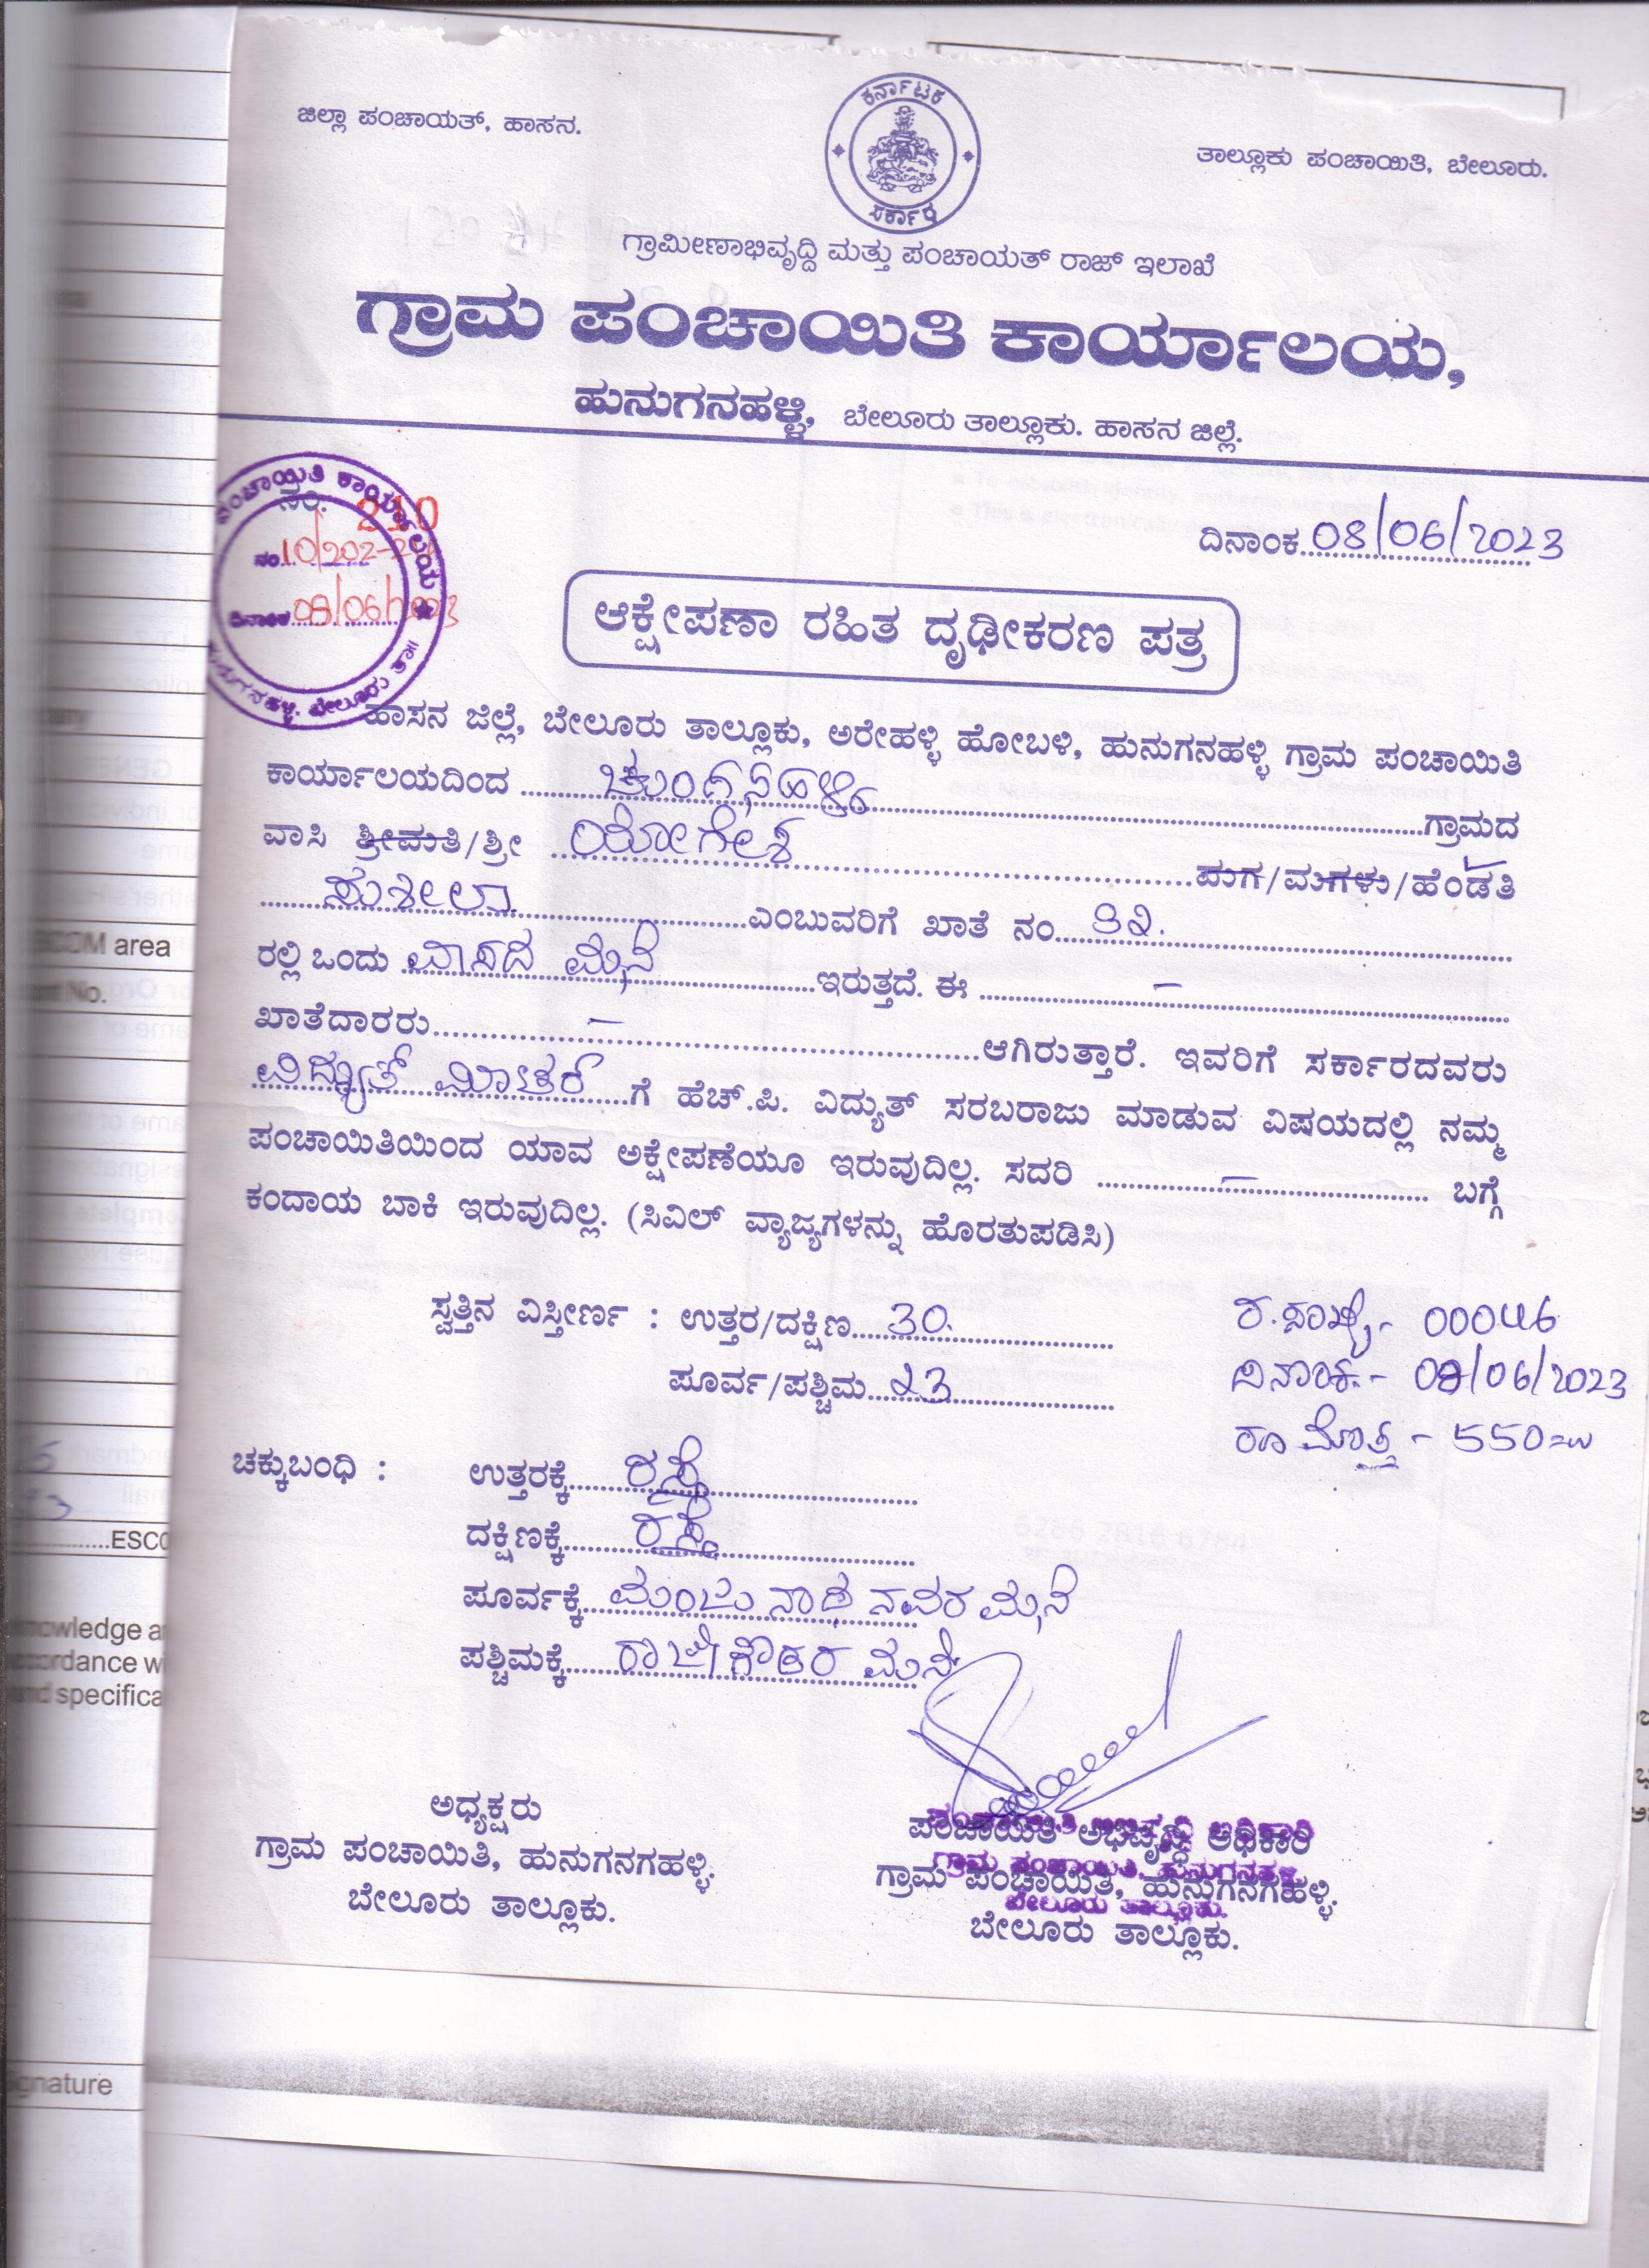 ಜಿಲ್ಲಾ ಪಂಚಾಯತ್, ಹಾಸನ.
ಕರ್ನಾಟಕ ಸರ್ಕಾರ
ತಾಲ್ಲೂಕು ಪಂಚಾಯಿತಿ, ಬೇಲೂರು.
ಗ್ರಾಮೀಣಾಭಿವೃದ್ದಿ ಮತ್ತು ಪಂಚಾಯತ್ ರಾಜ್ ಇಲಾಖೆ
ಗ್ರಾಮ ಪಂಚಾಯಿತಿ ಕಾರ್ಯಾಲಯ,
ಹುನುಗನಹಳ್ಳಿ, ಬೇಲೂರು ತಾಲ್ಲೂಕು. ಹಾಸನ ಜಿಲ್ಲೆ.
ಪಂಚಾಯ್ತಿತಿ ಕಾರ್ಯಾಲಯ
ನಂ. 210
ನಂ 10/202
ದಿನಾಂಕ 08/06/2023
ಹುನುಗನಹಳ್ಳಿ. ಬೇಲೂರು ತಾ॥
ದಿನಾಂಕ 08/06/2023
ಆಕ್ಷೇಪಣಾ ರಹಿತ ದೃಢೀಕರಣ ಪತ್ರ
ಹಾಸನ ಜಿಲ್ಲೆ, ಬೇಲೂರು ತಾಲ್ಲೂಕು, ಅರೇಹಳ್ಳಿ ಹೋಬಳಿ, ಹುನುಗನಹಳ್ಳಿ ಗ್ರಾಮ ಪಂಚಾಯಿತಿ
ಕಾರ್ಯಾಲಯದಿಂದ ಚುಂಗನಹಳ್ಳಿ ಗ್ರಾಮದ
ವಾಸಿ ಶ್ರೀಮತಿ/ಶ್ರೀ ಯೋಗೇಶ ಮಗ/ಮಗಳು/ಹೆಂಡತಿ
ಸುಶೀಲಾ ಎಂಬುವರಿಗೆ ಖಾತೆ ನಂ. ೩೨.
ರಲ್ಲಿ ಒಂದು ವಾಸದ ಮನೆ ಇರುತ್ತದೆ. ಈ –
ಖಾತೆದಾರರು – ಆಗಿರುತ್ತಾರೆ. ಇವರಿಗೆ ಸರ್ಕಾರದವರು
ವಿದ್ಯುತ್ ಮೀಟರ್ ಗೆ ಹೆಚ್.ಪಿ. ವಿದ್ಯುತ್ ಸರಬರಾಜು ಮಾಡುವ ವಿಷಯದಲ್ಲಿ ನಮ್ಮ
ಪಂಚಾಯಿತಿಯಿಂದ ಯಾವ ಅಕ್ಷೇಪಣೆಯೂ ಇರುವುದಿಲ್ಲ. ಸದರಿ – ಬಗ್ಗೆ
ಕಂದಾಯ ಬಾಕಿ ಇರುವುದಿಲ್ಲ. (ಸಿವಿಲ್ ವ್ಯಾಜ್ಯಗಳನ್ನು ಹೊರತುಪಡಿಸಿ)
ಸ್ವತ್ತಿನ ವಿಸ್ತೀರ್ಣ : ಉತ್ತರ/ದಕ್ಷಿಣ 30
ಪೂರ್ವ/ಪಶ್ಚಿಮ 23
ರ.ಸಂಖ್ಯೆ - 00046
ದಿನಾಂಕ - 08/06/2023
ರೂ ಮೊತ್ತ - 550=00
ಚಕ್ಕುಬಂಧಿ :
ಉತ್ತರಕ್ಕೆ ರಸ್ತೆ
ದಕ್ಷಿಣಕ್ಕೆ ರಸ್ತೆ
ಪೂರ್ವಕ್ಕೆ ಮಂಜುನಾಥ ನವರ ಮನೆ
ಪಶ್ಚಿಮಕ್ಕೆ ರಾಜೇಗೌಡರ ಮನೆ
ಅಧ್ಯಕ್ಷರು
ಗ್ರಾಮ ಪಂಚಾಯಿತಿ, ಹುನುಗನಗಹಳ್ಳಿ.
ಬೇಲೂರು ತಾಲ್ಲೂಕು.
ಪಂಚಾಯಿತಿ ಅಭಿವೃದ್ಧಿ ಅಧಿಕಾರಿ
ಗ್ರಾಮ ಪಂಚಾಯಿತಿ, ಹುನುಗನಗಹಳ್ಳಿ.
ಬೇಲೂರು ತಾಲ್ಲೂಕು.
ಪಂಚಾಯಿತಿ ಅಭಿವೃದ್ಧಿ ಅಧಿಕಾರಿ
ಗ್ರಾಮ ಪಂಚಾಯಿತಿ, ಹುನುಗನಹಳ್ಳಿ
ಬೇಲೂರು ತಾಲ್ಲೂಕು.
area
No.
ESCO
accordance
and